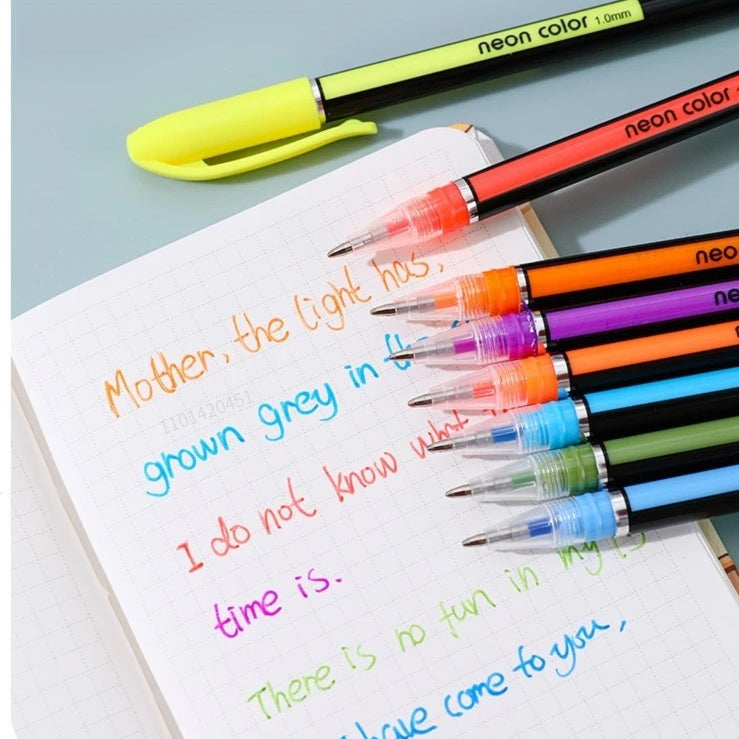 neon color 1.0mm
neon color
neo
ne
Mother, the light has,
grown grey in the
1101420451
I do not know what
time is.
There is no fun in my
have come to you,